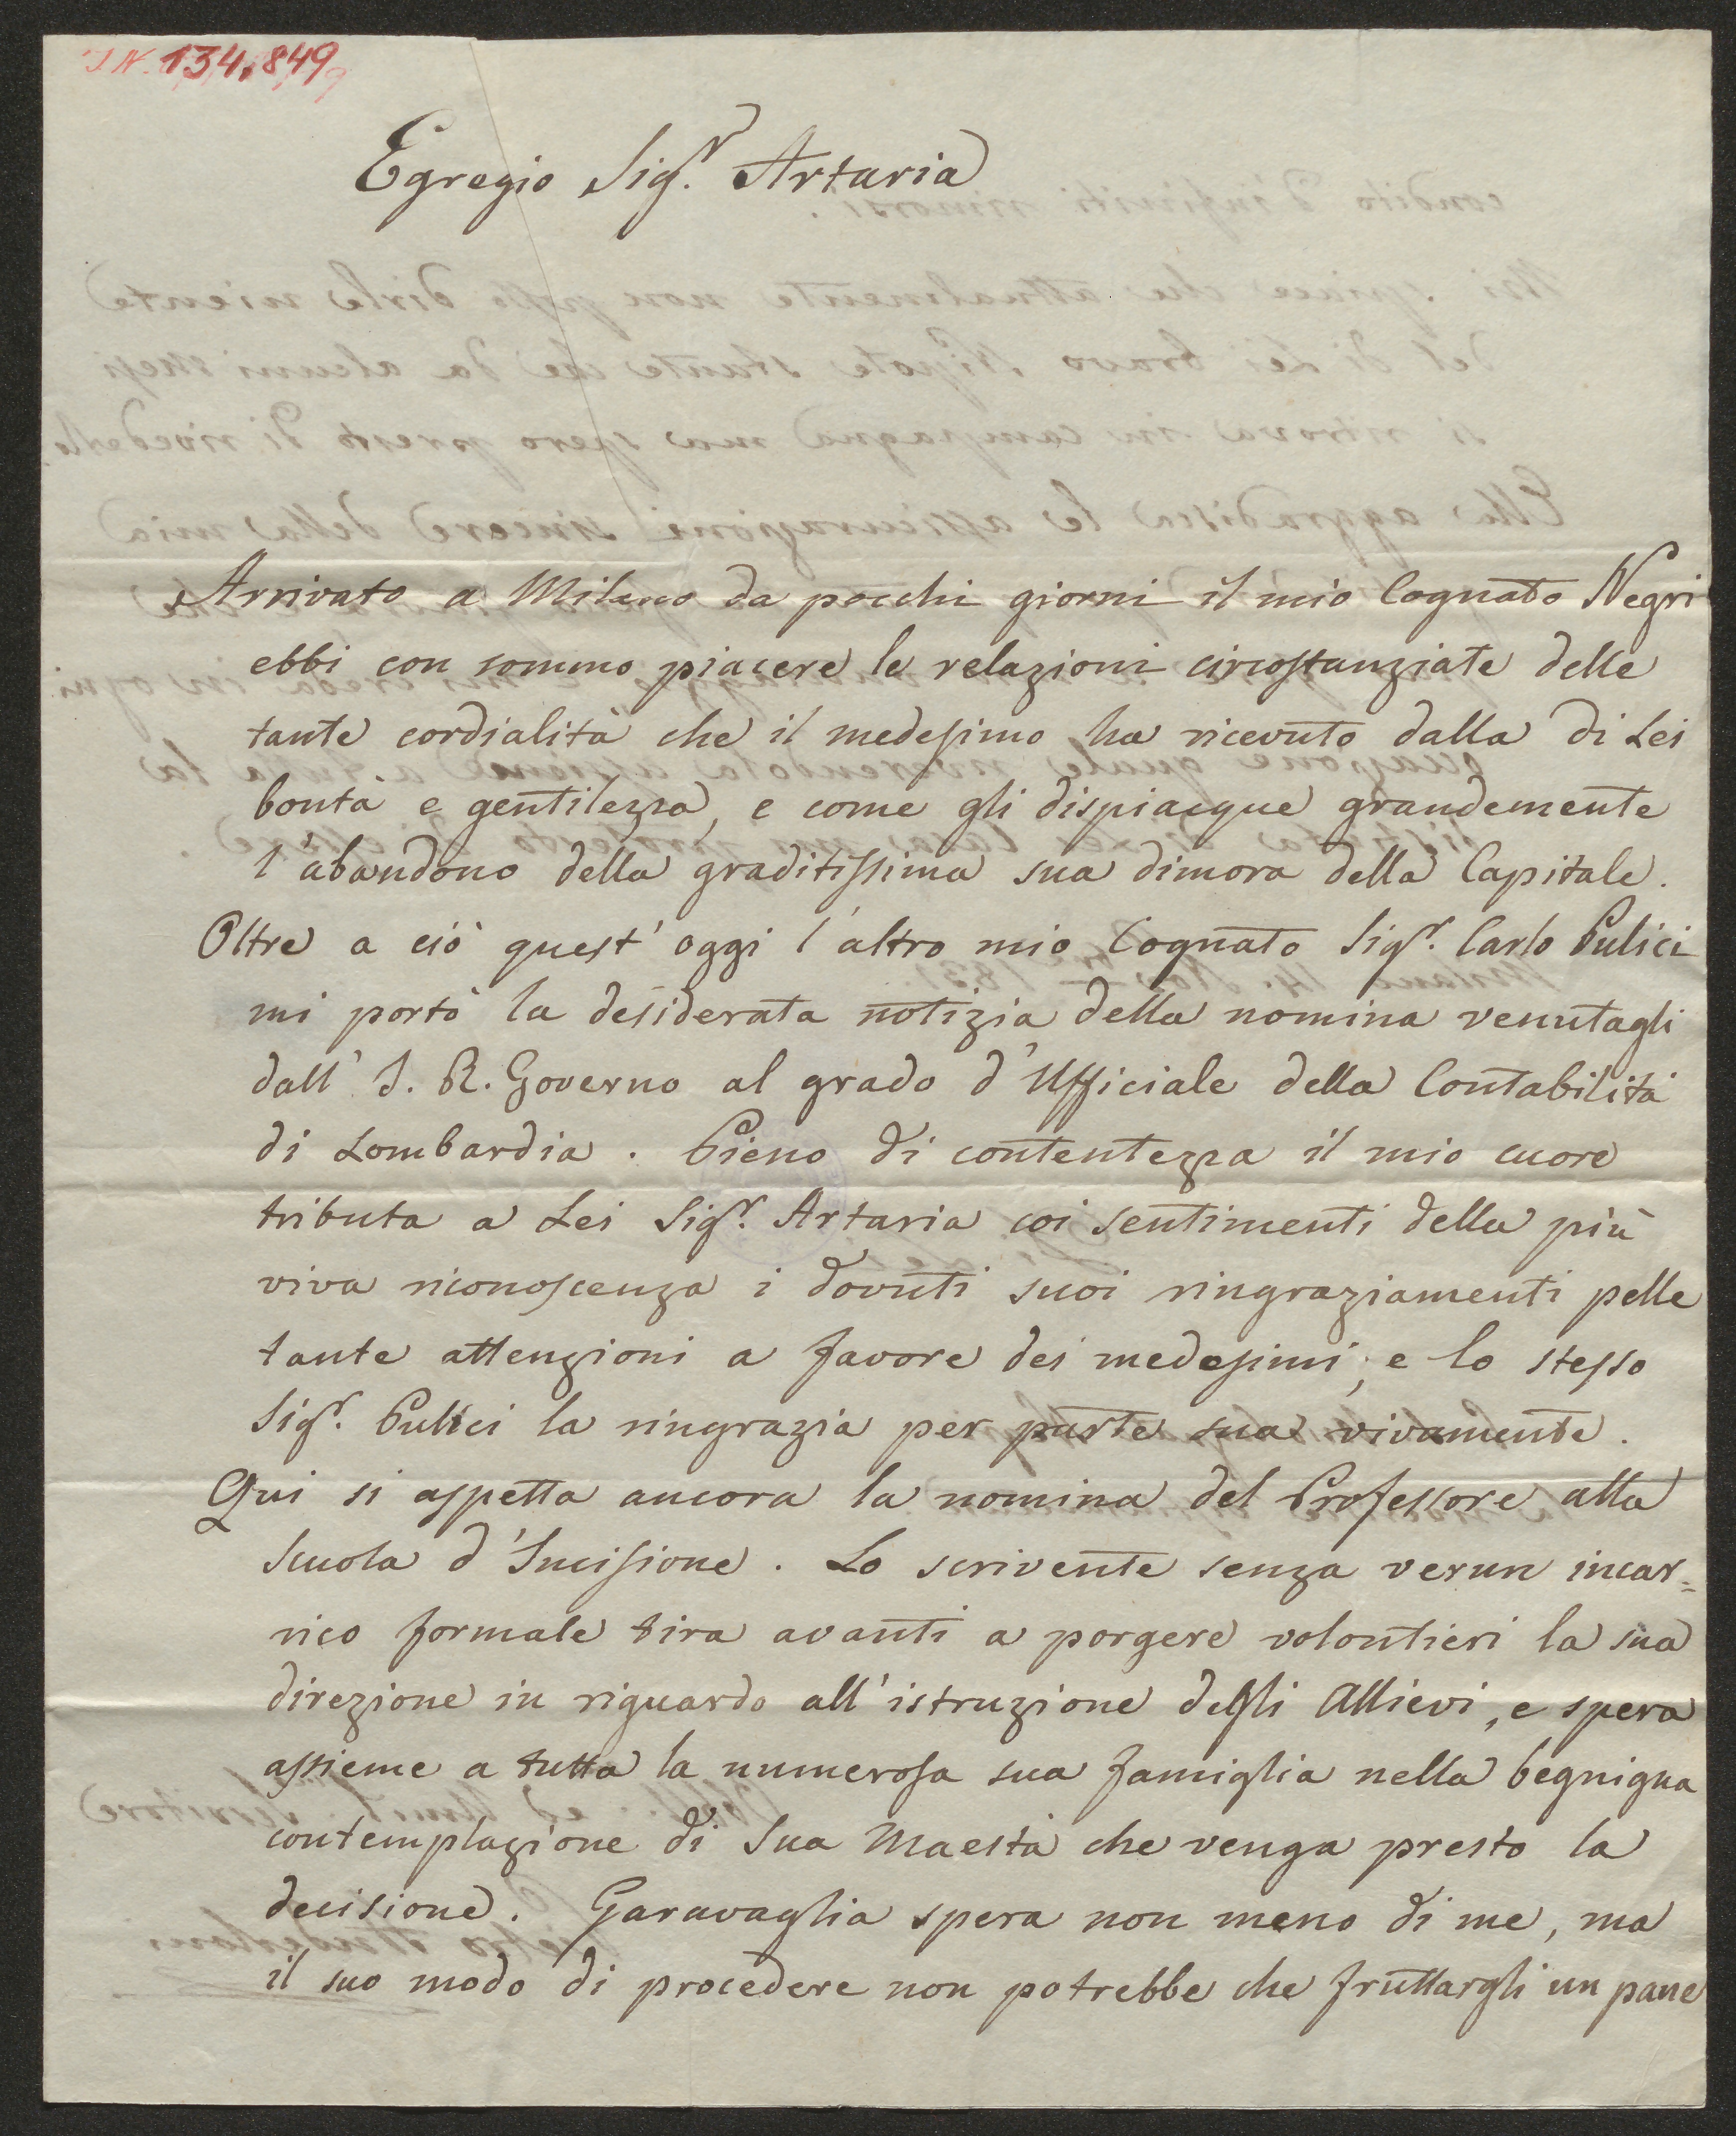 I N. 134.849
Egregio Sigr. Artaria
Arrivato a Milano da pocchi giorni il mio Cognato Negri
ebbi con sommo piacere le relazioni circostanziate delle
tante cordialità che il medesimo ha ricevuto dalla di Lei
bontà e gentilezza, e come gli dispiacque grandemente
l'abandono della graditissima sua dimora della Capitale.
Oltre a ciò quest'oggi l'altro mio Cognato Sigr. Carlo Pulici
mi portò la desiderata notizia della nomina venutagli
dall' I. R. Governo al grado d'Ufficiale della Contabilità
di Lombardia. Pieno di contentezza il mio cuore
tributa a Lei Sigr. Artaria coi sentimenti della più
viva riconoscenza i dovuti suoi ringraziamenti pelle
tante attenzioni a favore dei medesimi, e lo stesso
Sigr. Pulici la ringrazia per parte sua vivamente.
Qui si aspetta ancora la nomina del Professore alla
Scuola d'Incisione. Lo scrivente senza verun incar=
rico formale tira avanti a porgere volontieri la sua
direzione in riguardo all'istruzione degli Allievi, e spera
assieme a tutta la numerosa sua famiglia nella begnigna
contemplazione di Sua Maestà che venga presto la
decisione. Garavaglia spera non meno di me, ma
il suo modo di procedere non potrebbe che fruttargli un pane